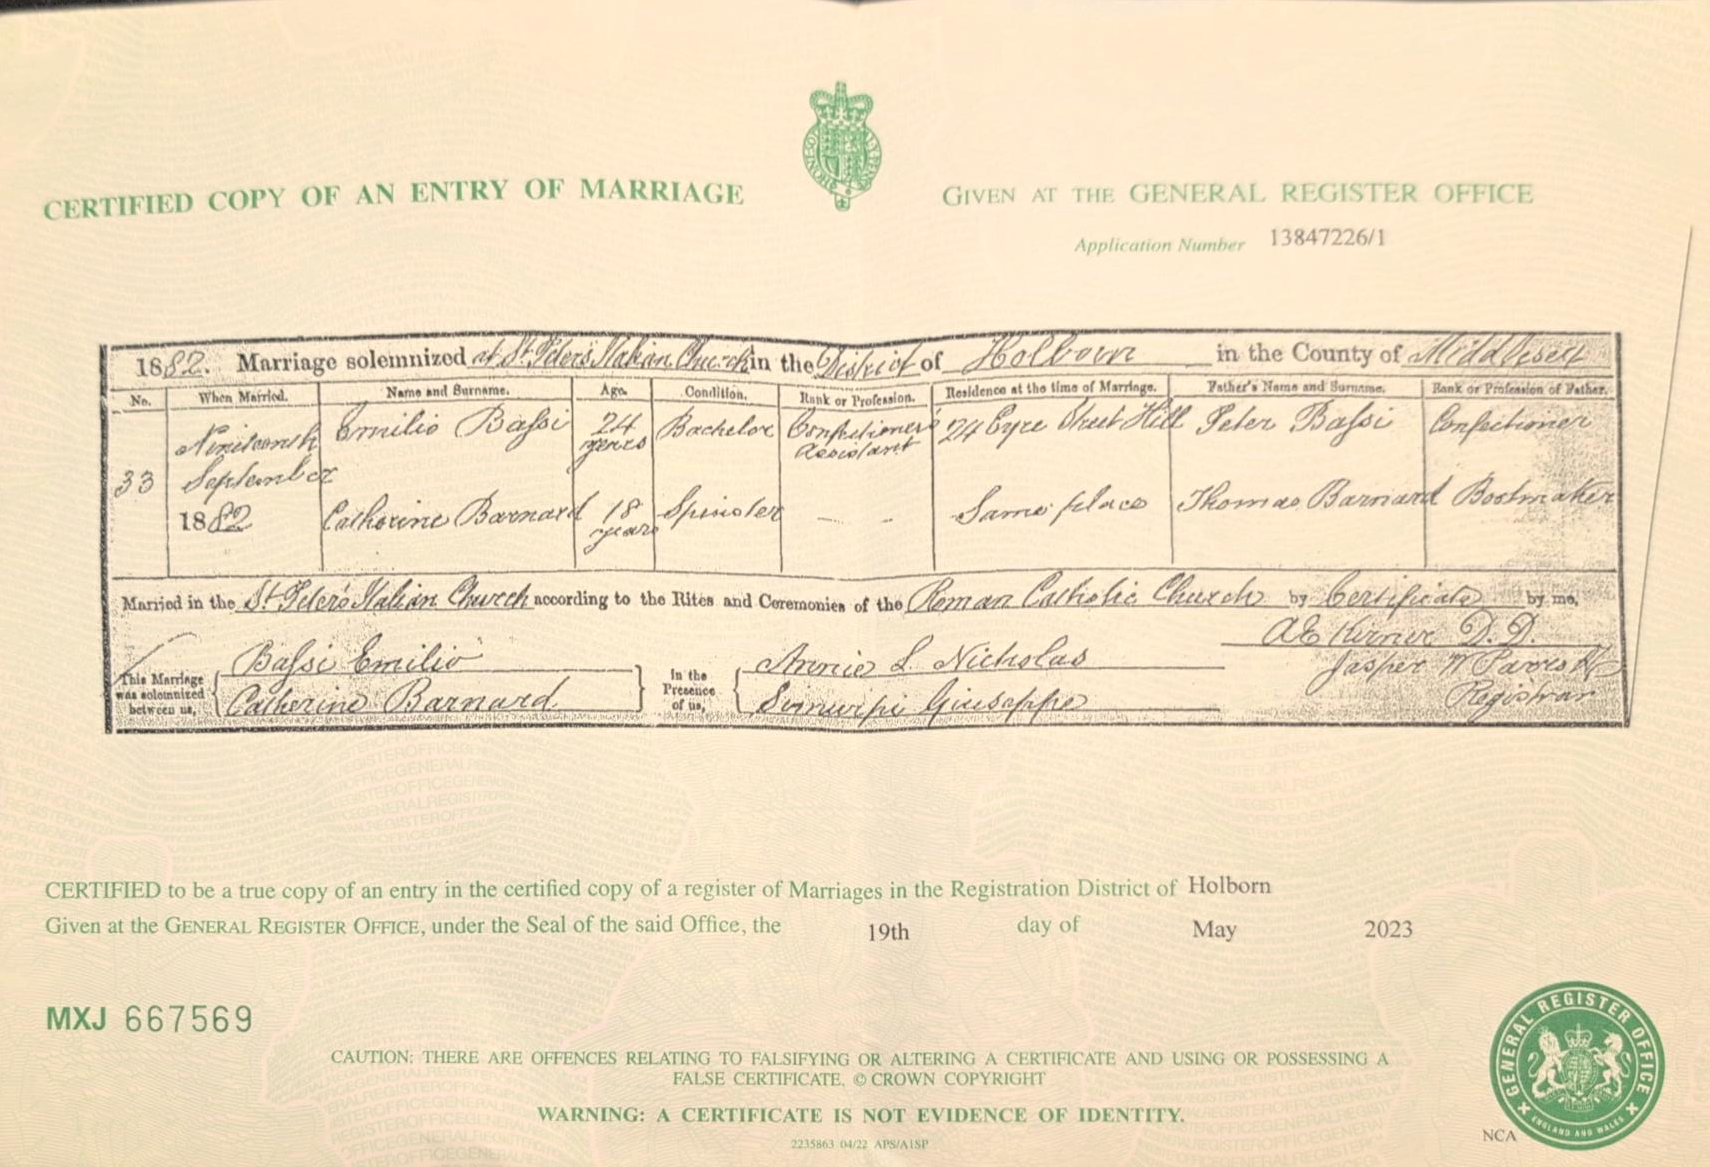 CERTIFIED COPY OF AN ENTRY OF MARRIAGE
GIVEN AT THE GENERAL REGISTER OFFICE
Application Number 13847226/1
1882. Marriage solemnized at St. Peter's Italian Church in the District of Holborn in the County of Middlesex
No. When Married. Name and Surname. Age. Condition. Rank or Profession. Residence at the time of Marriage. Father's Name and Surname. Rank or Profession of Father.
33 Nineteenth September 1882
Emilio Bassi 24 years Bachelor Confectioner's Assistant 24 Eyre Street Hill Peter Bassi Confectioner
Catherine Barnard 18 years Spinster — - Same place Thomas Barnard Bootmaker
Married in the St. Peter's Italian Church according to the Rites and Ceremonies of the Roman Catholic Church by Certificate by me,
D. D.
This Marriage was solemnized between us, Bassi Emilio Catherine Barnard
In the Presence of us, Annie L. Nicholas Giuseppe
Jasper W
Registrar
CERTIFIED to be a true copy of an entry in the certified copy of a register of Marriages in the Registration District of Holborn
Given at the GENERAL REGISTER OFFICE, under the Seal of the said Office, the 19th day of May 2023
MXJ 667569
CAUTION: THERE ARE OFFENCES RELATING TO FALSIFYING OR ALTERING A CERTIFICATE AND USING OR POSSESSING A
FALSE CERTIFICATE. © CROWN COPYRIGHT
WARNING: A CERTIFICATE IS NOT EVIDENCE OF IDENTITY.
2235863 04/22 APS/A1SP
NCA
GENERAL REGISTER OFFICE
ENGLAND AND WALES